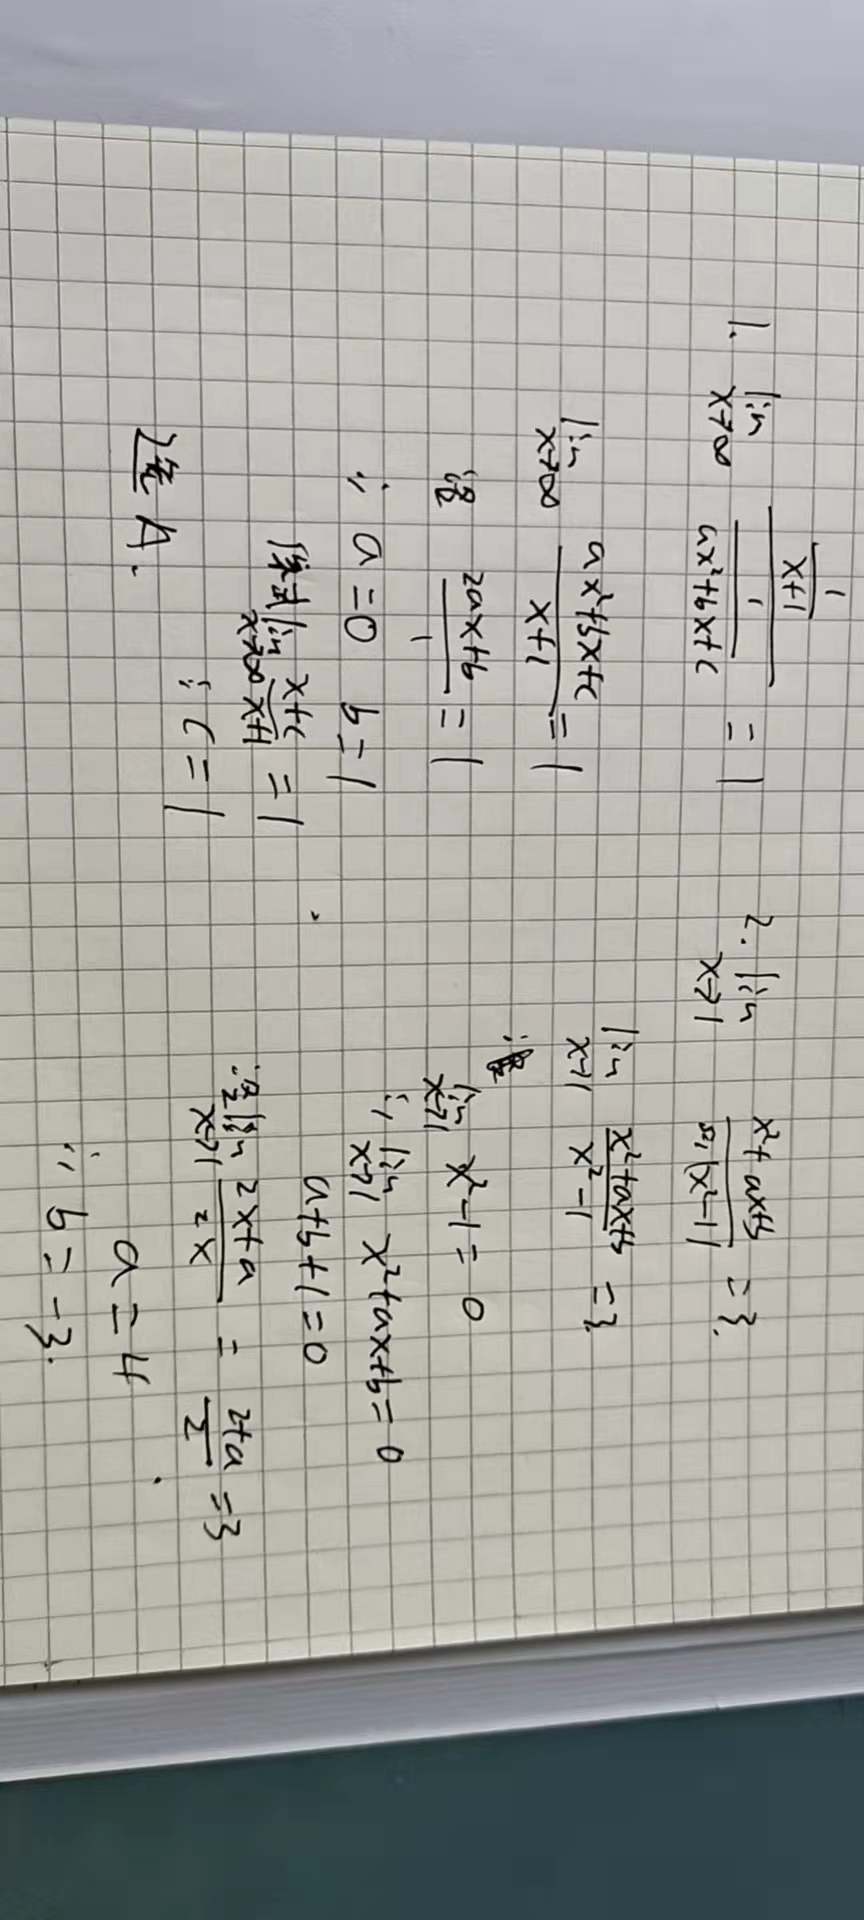 1. lim x→∞ (1/(x+1))/(1/(ax²+bx+c)) = 1
lim x→∞ (ax²+bx+c)/(x+1) = 1
∴ (2ax+b)/1 = 1
∴ a=0 b=1
原式 lim x→∞ (x+c)/(x+1) = 1
∴ c=1
选 A.
2. lim x→1 (x²+ax+b)/(sin(x²-1)) = 3.
lim x→1 (x²+ax+b)/(x²-1) = 3.
lim x→1 x²-1=0
∴ lim x→1 x²+ax+b=0
a+b+1=0
lim x→1 (2x+a)/(2x) = (2+a)/2 = 3
a=4
∴ b=-3.